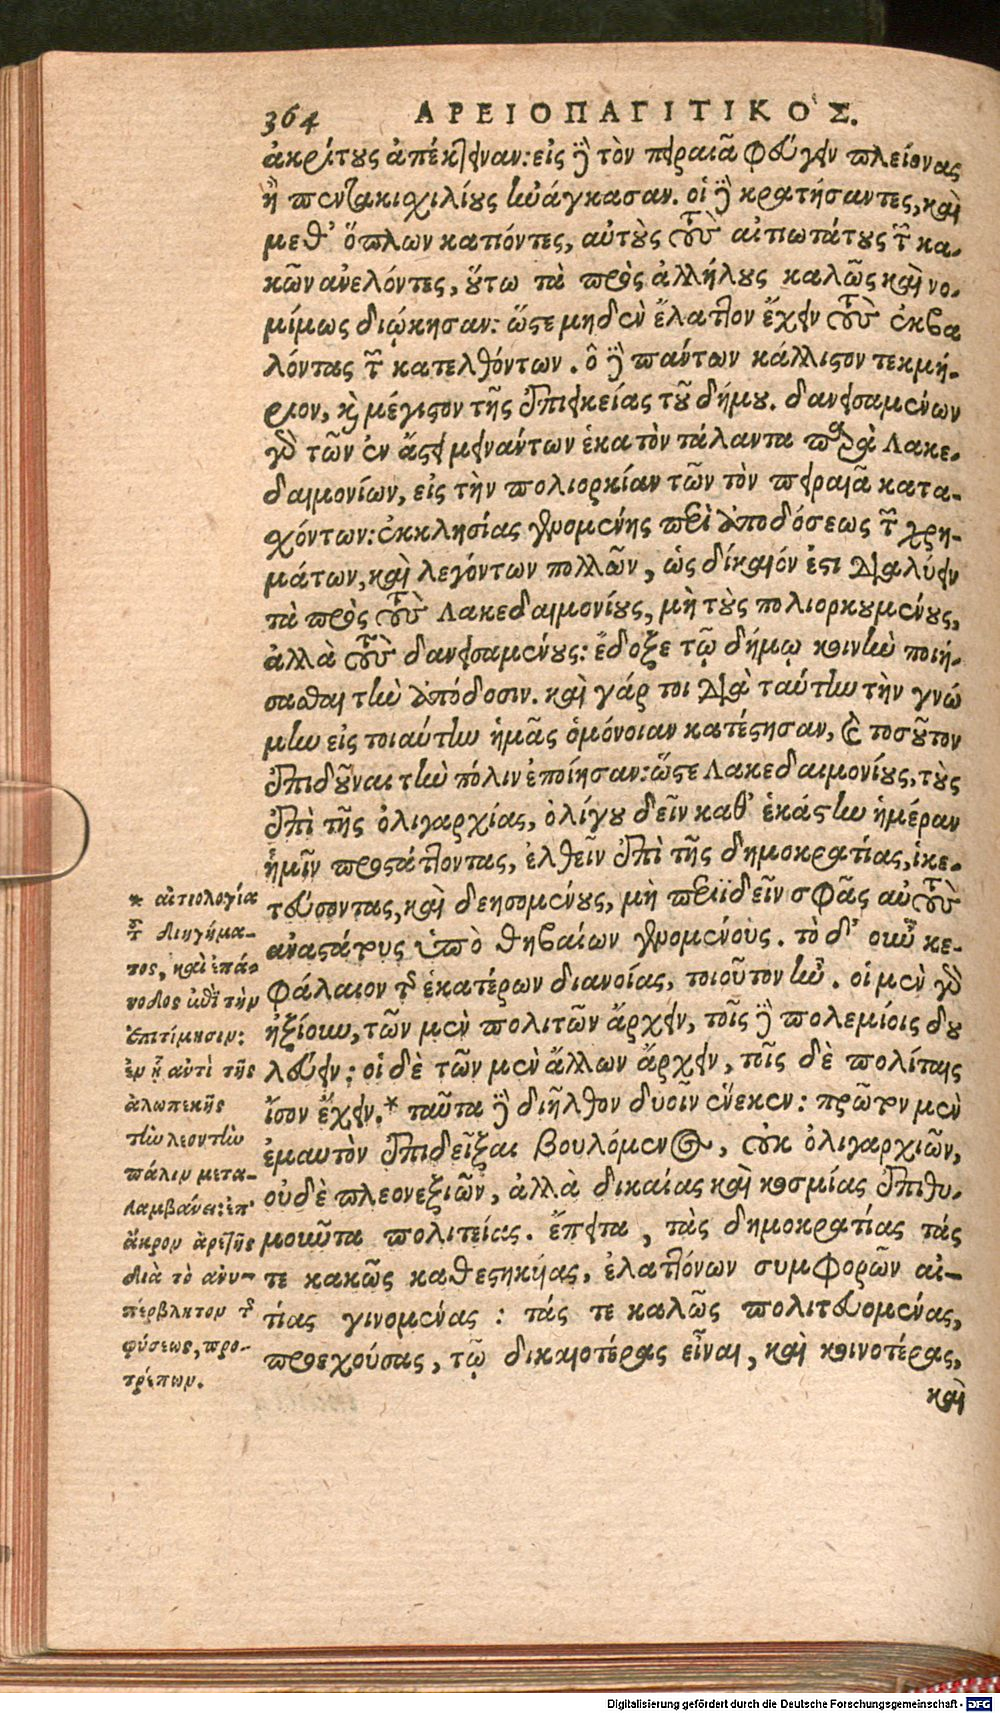 364 ΑΡΕΙΟΠΑΓΙΤΙΚΟΣ.
ἀκρίτους ἀπέκτειναν: εἰς δὲ τὸν πειραιᾶ φυγεῖν πλείονας
ἢ πεντακισχιλίους ἠνάγκασαν. οἱ δὲ κρατήσαντες, καὶ
μεθ' ὅπλων κατιόντες, αὐτοὺς τοὺς αἰτιωτάτους τῶν κα-
κῶν ἀνελόντες, οὕτω τὰ πρὸς ἀλλήλους καλῶς καὶ νο-
μίμως διῴκησαν: ὥστε μηδὲν ἔλαττον ἔχειν τοὺς ἐκβα
λόντας τῶν κατελθόντων. ὃ δὲ πάντων κάλλιστον τεκμή-
ριον, καὶ μέγιστον τῆς ἐπιεικείας τοῦ δήμου. δανεισαμένων
γὰρ τῶν ἐν ἄστει μεινάντων ἑκατὸν τάλαντα παρὰ Λακε-
δαιμονίων, εἰς τὴν πολιορκίαν τῶν τὸν πειραιᾶ κατα-
χόντων: ἐκκλησίας γενομένης περὶ ἀποδόσεως τῶν χρη-
μάτων, καὶ λεγόντων πολλῶν, ὡς δίκαιόν ἐστι διαλύειν
τὰ πρὸς τοὺς Λακεδαιμονίους, μὴ τοὺς πολιορκουμένους,
ἀλλὰ τοὺς δανεισαμένους: ἔδοξε τῷ δήμῳ κοινὴν ποιή-
σασθαι τὴν ἀπόδοσιν. καὶ γάρ τοι διὰ ταύτην τὴν γνώ
μην εἰς τοιαύτην ἡμᾶς ὁμόνοιαν κατέστησαν, καὶ τοσοῦτον
ἐπιδοῦναι τὴν πόλιν ἐποίησαν: ὥστε Λακεδαιμονίους, τοὺς
ἐπὶ τῆς ὀλιγαρχίας, ὀλίγου δεῖν καθ' ἑκάστην ἡμέραν
ἡμῖν προστάττοντας, ἐλθεῖν ἐπὶ τῆς δημοκρατίας, ἱκε-
τεύσοντας, καὶ δεησομένους, μὴ περιϊδεῖν σφᾶς αὐτοὺς
ἀναστάτους ὑπὸ θηβαίων γενομένους. τὸ δ' οὖν κε-
φάλαιον τῆς ἑκατέρων διανοίας, τοιοῦτον ἦν. οἱ μὲν γὰρ
ἠξίουν, τῶν μὲν πολιτῶν ἄρχειν, τοῖς δὲ πολεμίοις δου
λεύειν: οἱ δὲ τῶν μὲν ἄλλων ἄρχειν, τοῖς δὲ πολίταις
ἴσον ἔχειν.* ταῦτα δὲ διῆλθον δυοῖν ἕνεκεν: πρῶτον μὲν
ἐμαυτὸν ἐπιδεῖξαι βουλόμενος, οὐκ ὀλιγαρχιῶν,
οὐδὲ πλεονεξιῶν, ἀλλὰ δικαίας καὶ κοσμίας ἐπιθυ-
μοῦντα πολιτείας. ἔπειτα, τὰς δημοκρατίας τάς
τε κακῶς καθεστηκυίας, ἐλαττόνων συμφορῶν αἰ-
τίας γινομένας: τάς τε καλῶς πολιτευομένας,
προεχούσας, τῷ δικαιοτέρας εἶναι, καὶ κοινοτέρας,
καὶ
* αἰτιολογία
τοῦ διηγήμα-
τος, καὶ ἐπά-
νοδος ἐπὶ τὴν
ἐπιτίμησιν:
ἐν ᾗ ἀντὶ τῆς
ἀλωπεκῆς
τὴν λεοντῆν
πάλιν μετα-
λαμβάνει: ἐπ'
ἄκρον ἀρετῆς
διὰ τὸ ἀνυ-
πέρβλητον τῆς
φύσεως, προ-
τρέπων.
Digitalisierung gefördert durch die Deutsche Forschungsgemeinschaft - DFG